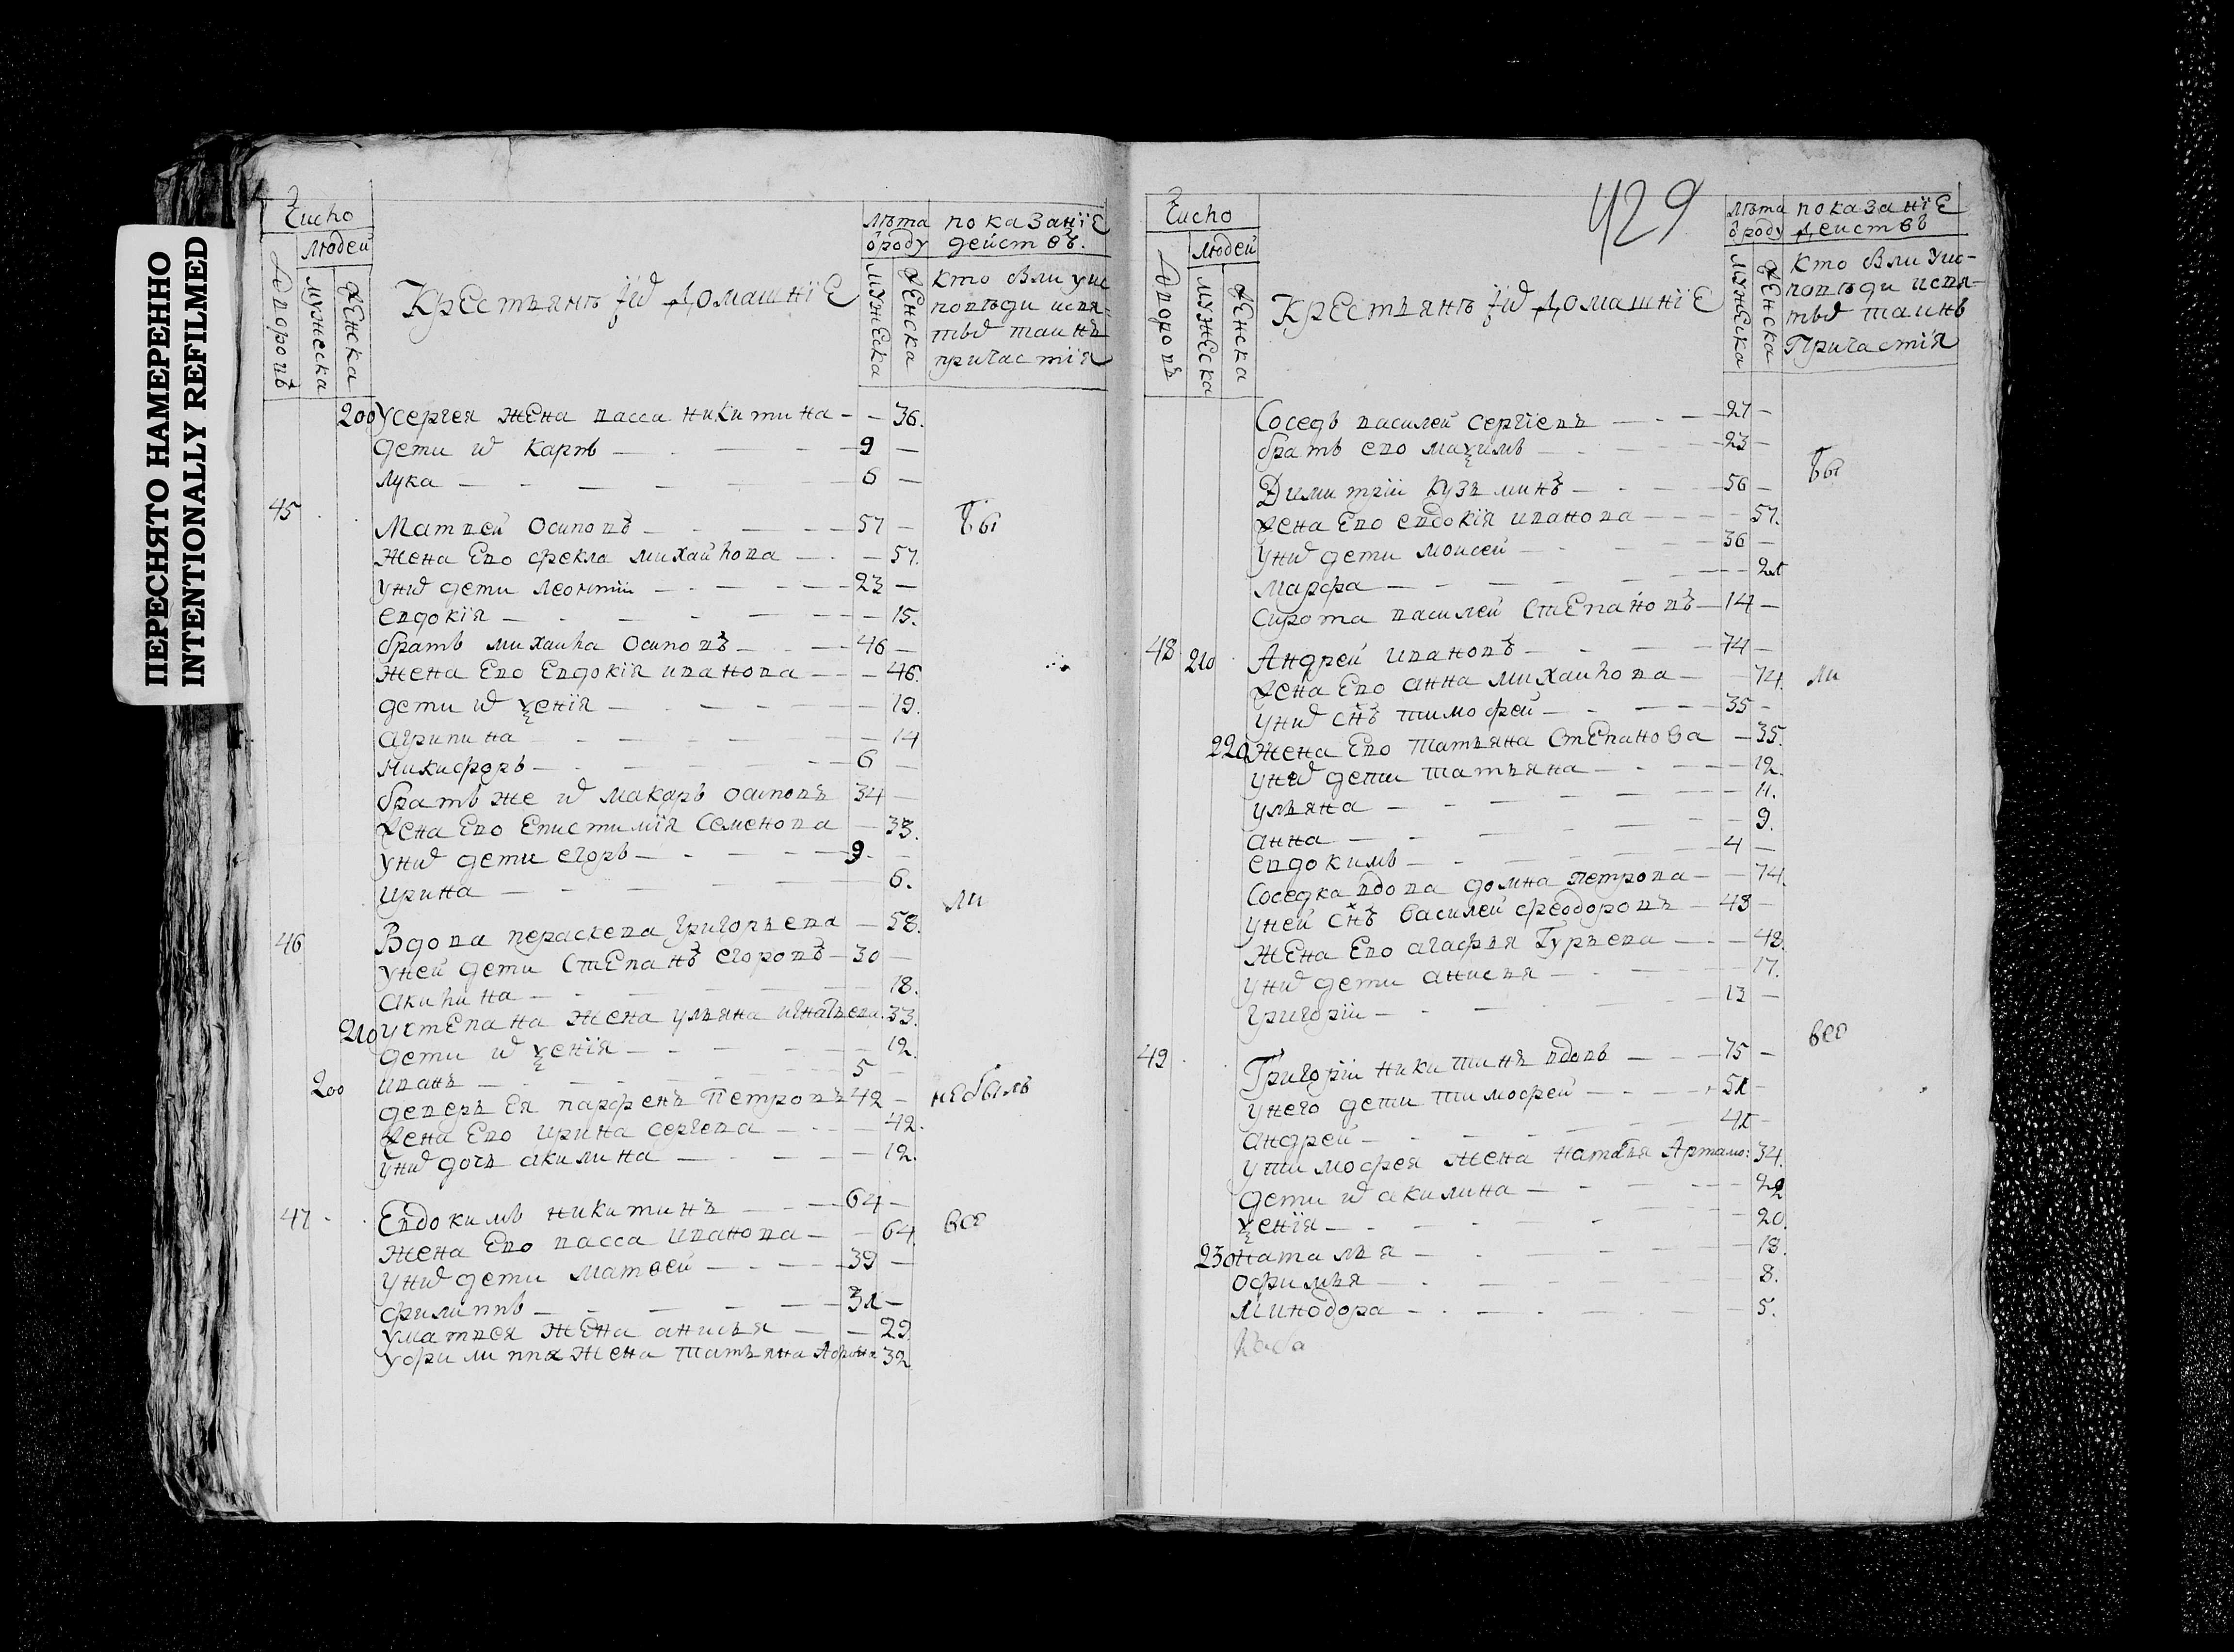 ПЕРЕСНЯТО НАМЕРЕННО
INTENTIONALLY REFILMED
Число
людей
дворовъ
мужеска
женска
Крестьянѣ и ихъ домашнїе
лѣта
ѿроду
мужеска
женска
показанїе
действъ.
кто были у ис
поведи и свя-
тыхъ таинъ
причастїя
200 у сергея жена васса никитина - - 36.
дети их карпъ - 9 -
лука - 6 -
45 Матвей осиповъ - 57 - бы
жена Ево фекла михайлова - 57.
у них дети леонтии - 23 -
евдокїя - 15.
братъ михаила осиповъ - 46 -
жена Ево Евдокїя иванова - 46.
дети их ѯенїя - 19.
агрипина - 14
никифоръ - 6 -
братъ же их макаръ осиповъ 34 -
жена Ево Епистимїя Семенова - 33.
у них дети егоръ - 9. -
ирина - 6.
ли
46 Вдова параскева григорьева - 58.
у ней дети Степанъ егоровъ - 30 -
акилина - 18.
210 у степана жена ульяна игнатьева. 33.
дети их ѯенїя - 12.
иванъ - 5 -
200 деверь Ея парфенъ Петровъ 42 - небыль
жена Ево ирина сергева - 42.
у них дочь акилина - 12.
47 Евдокимъ никитинъ - 64 -
жена Ево васса иванова - 64. все
у них дети матвей - 39 -
филиппъ - 31 -
у матвея жена анисья - 29.
у филиппа жена татьяна 32
429
Число
людей
дворовъ
мужеска
женска
Крестьянѣ и ихъ домашнїе
лѣта
ѿроду
мужеска
женска
показанїе
действъ
кто были у ис-
поведи и свя-
тыхъ таинъ
Причастїя
Соседъ василей сергїевъ - 27 -
братъ ево маѯимъ - 23 -
бы
Димитрїи кузьминъ - 56 -
жена Ево евдокїя иванова - 57.
у них дети моисей - 36 -
марфа - 21
сирота василей Степановъ - 14 -
48 210 Андрей ивановъ - 74 -
жена Ево анна михаилова - 74. ли
у них снъ тимофей - 35 -
220 жена Ево татьяна Степанова - 35.
у них дети татьяна - 12.
ульяна - 11.
анна - 9.
евдокимъ - 4 -
Соседка вдова домна петрова - 74.
у ней снъ василей феодоровъ - 48 -
жена Ево агафья Гурьева - 48.
у них дети анисья - 17.
григорїи - 13 -
все
49 Григорїи никитинъ вдовъ - 75 -
у него дети тимофей - 51 -
андрей - 41 -
у тимофея жена наталья Артамо: 34.
дети их акилина - 22
ѯенїя - 20.
230 наталья - 18.
офимья - 8.
Минодора - 5.